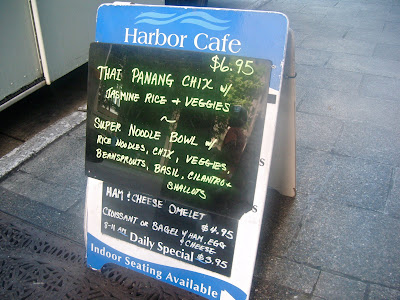 Harbor Cafe
$6.95
THAI PANANG CHIX w/
JASMINE RICE + VEGGIES
~
SUPER NOODLE BOWL w/
RICE NOODLES, CHIX, VEGGIES,
BEANSPROUTS, BASIL, CILANTRO +
SHALLOTS
HAM & CHEESE OMELET
$4.95
CROISSANT OR BAGEL w/ HAM, EGG
& CHEESE
8-11 AM
Daily Special
$3.95
Indoor Seating Available